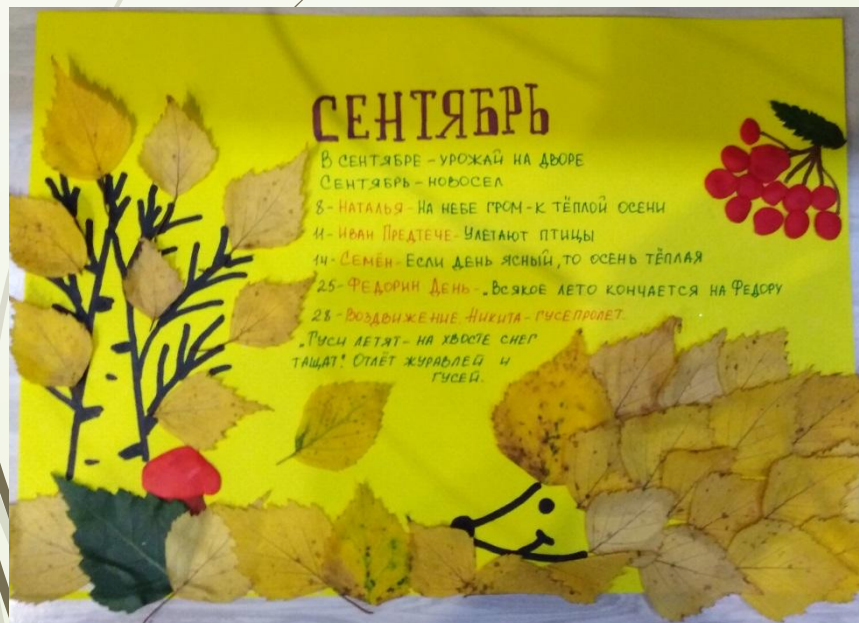 СЕНТЯБРЬ
В СЕНТЯБРЕ - УРОЖАЙ НА ДВОРЕ
СЕНТЯБРЬ - НОВОСЕЛ
8 - НАТАЛЬЯ - НА НЕБЕ ГРОМ - К ТЁПЛОЙ ОСЕНИ
11 - ИВАН ПРЕДТЕЧЕ - УЛЕТАЮТ ПТИЦЫ
14 - СЕМЁН - ЕСЛИ ДЕНЬ ЯСНЫЙ, ТО ОСЕНЬ ТЁПЛАЯ
25 - ФЕДОРИН ДЕНЬ - „ВСЯКОЕ ЛЕТО КОНЧАЕТСЯ НА ФЕДОРУ
28 - ВОЗДВИЖЕНИЕ. НИКИТА - ГУСЕПРОЛЕТ.
„ГУСИ ЛЕТЯТ - НА ХВОСТЕ СНЕГ
ТАЩАТ" ОТЛЁТ ЖУРАВЛЕЙ И
ГУСЕЙ.